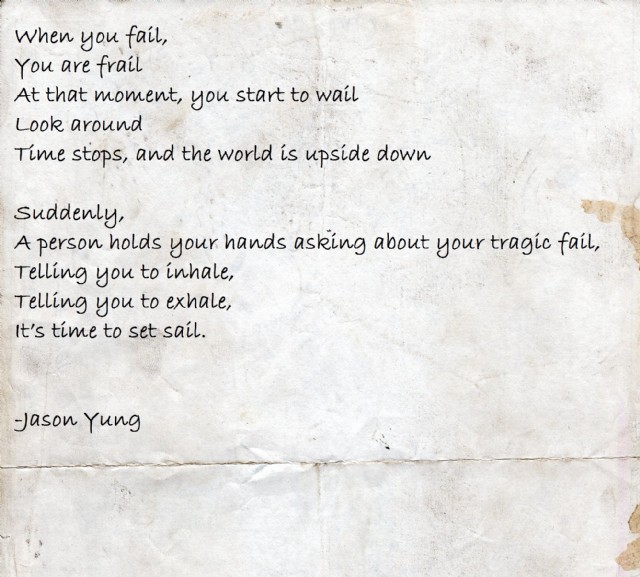 When you fail,
You are frail
At that moment, you start to wail
Look around
Time stops, and the world is upside down
Suddenly,
A person holds your hands asking about your tragic fail,
Telling you to inhale,
Telling you to exhale,
It's time to set sail.
-Jason Yung